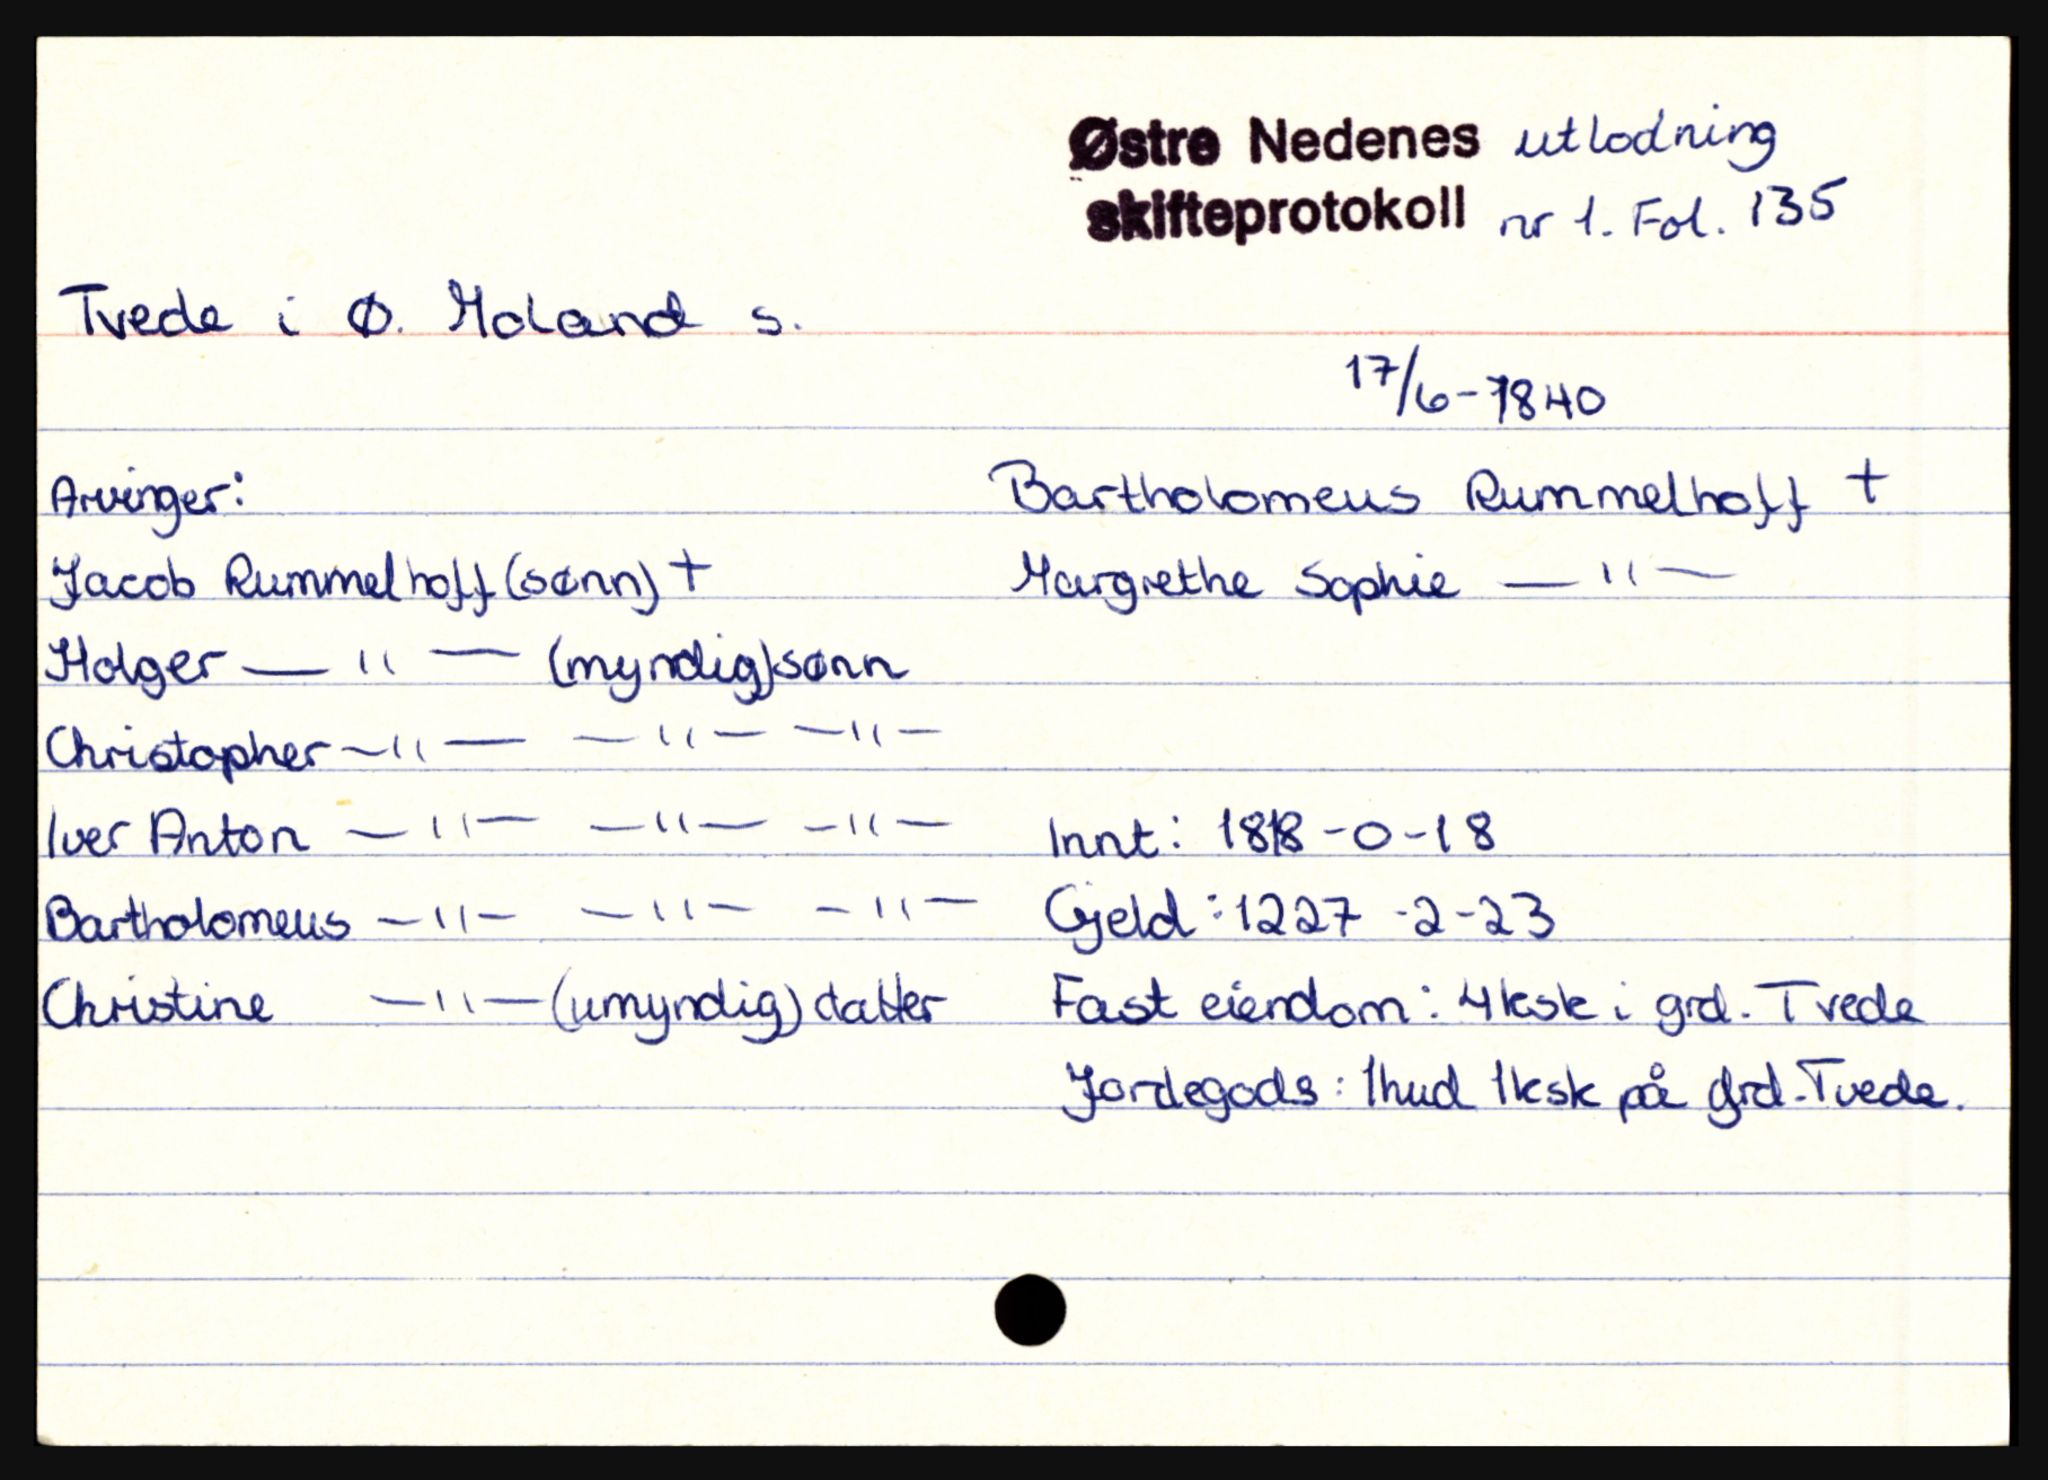 Østre Nedenes utlodning
skifteprotokoll nr 1. Fol. 135
Tvede i Ø. Moland s.
17/6-1840
Arvinger:
Jacob Rummelhoff (sønn) +
Holger — " — (myndig) sønn
Christopher — " — — " — — " —
Iver Anton — " — — " — — " —
Bartholomeus — " — — " — — " —
Christine — " — (umyndig) datter
Bartholomeus Rummelhoff +
Margrethe Sophie — " —
Innt: 1818-0-18
Gjeld: 1227-2-23
Fast eiendom: 4 ksk i grd. Tvede
Jordegods: 1 hud 1 ksk på grd. Tvede.